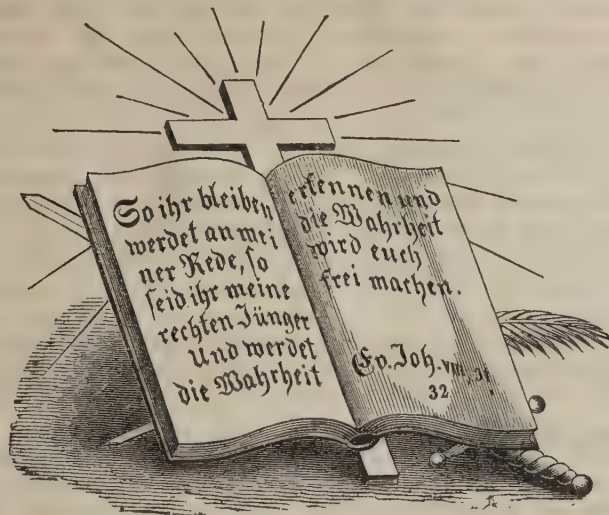 So ihr bleiben
werdet an mei
ner Rede, so
seid ihr meine
rechten Jünger
Und werdet
die Wahrheit
erkennen und
die Wahrheit
wird euch
frei machen.
Ev. Joh. VIII, 31,
32